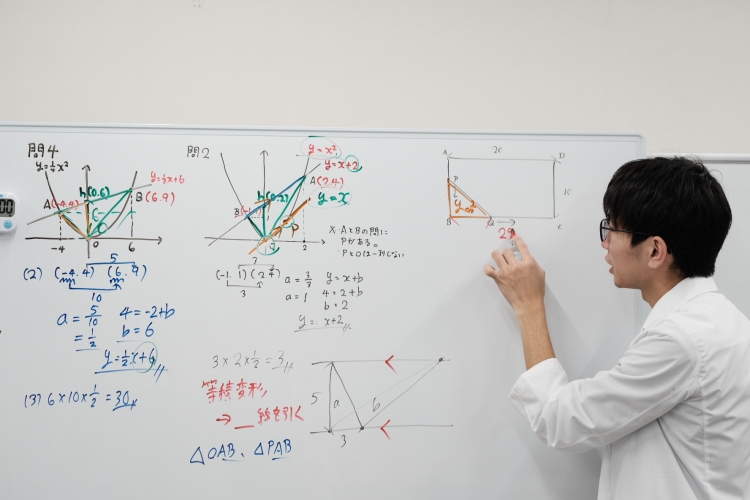 問4
y=¼x²
y=½x+6
A(-4.4)
h(0.6)
B(6.9)
-4
0
6
(2) (-4.4) (6.9)
5
10
a=5/10
=1/2
4=-2+b
b=6
y=½x+6
(3) 6×10×½=30
問2
y=x²
y=x+2
A(2.4)
h(0.2)
y=x
B
P
2
※AとBの間に
Pがある。
(-1.1)(2.4)
3
a=3/3
a=1
y=x+b
4=2+b
b=2
y=x+2
3×2×½=3
等積変形
→ 線を引く
△OAB、△PAB
5
a
b
3
A
D
P
B
Q
C
00